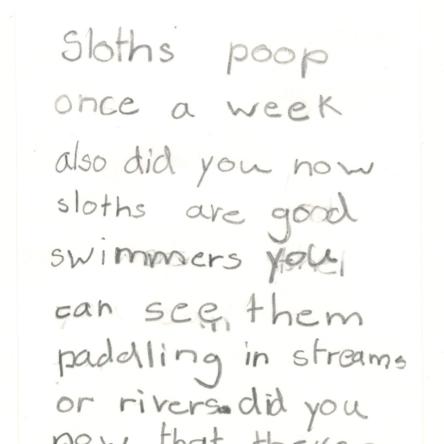 Sloths poop
once a week
also did you now
sloths are good
swimmers you
can see them
paddling in streams
or rivers. did you
now that